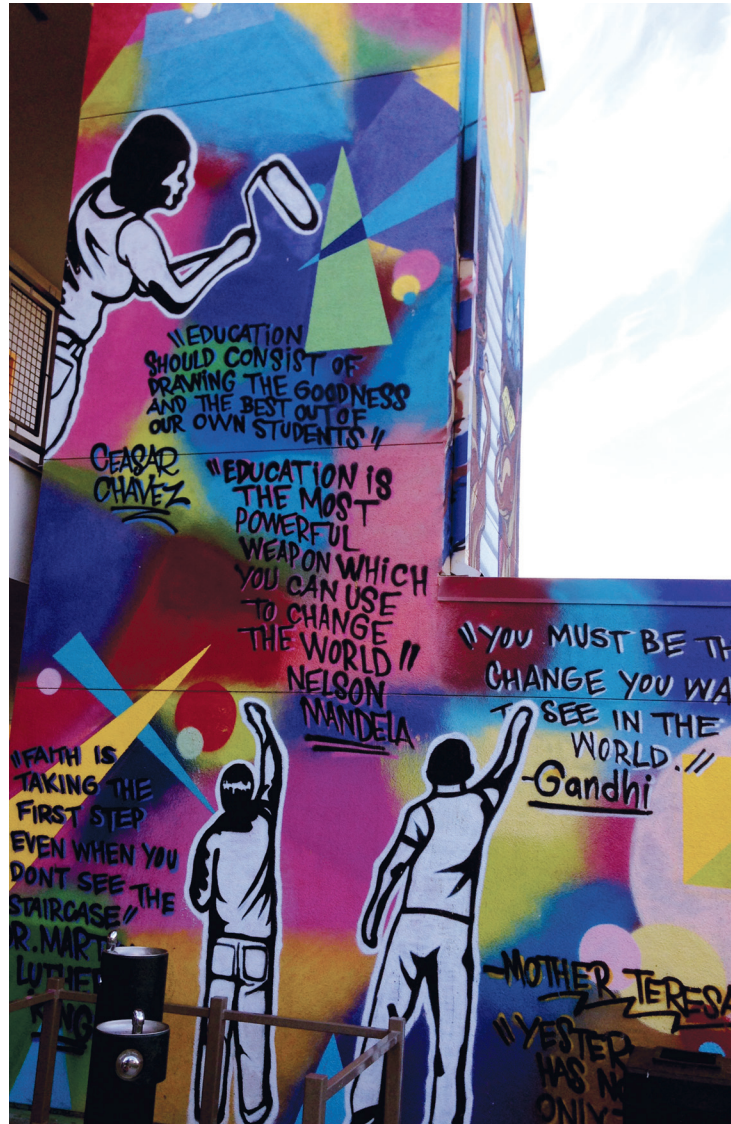 "EDUCATION
SHOULD CONSIST OF
DRAWING THE GOODNESS
AND THE BEST OUT OF
OUR OWN STUDENTS"
CEASAR
CHAVEZ
"EDUCATION IS
THE MOST
POWERFUL
WEAPON WHICH
YOU CAN USE
TO CHANGE
THE WORLD"
NELSON
MANDELA
"YOU MUST BE
CHANGE YOU
SEE IN THE
WORLD."
-Gandhi
"FAITH IS
TAKING THE
FIRST STEP
EVEN WHEN YOU
DONT SEE THE
STAIRCASE"
LUTHER
KING
-MOTHER TERESA
"YESTER
HAS
ONLY